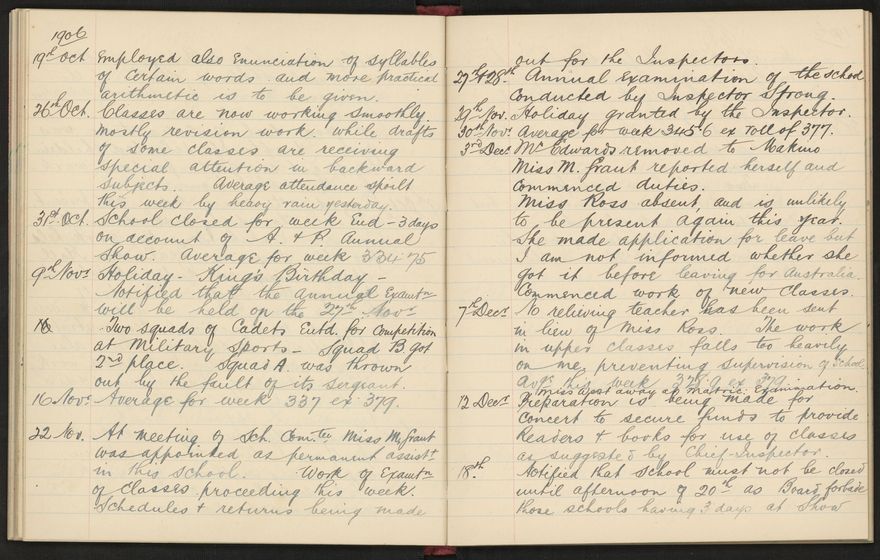 1906
19th Oct Employed also Enunciation of syllables
of certain words and more practical
arithmetic is to be given.
26th Oct. Classes are now working smoothly.
mostly revision work. While drafts
of some classes are receiving
special attention in backward
subjects. Average attendance spoilt
this week by heavy rain yesterday.
31st Oct. School closed for week End - 3 days
on account of A. & P. Annual
Show. Average for week 334.75
9th Novr Holiday - King's Birthday -
Notified that the annual Examtn
will be held on the 27th Novr
Two squads of Cadets Entd. for competition
at Military Sports - Squad B got
2nd place. Squad A. was thrown
out by the fault of its sergeant.
16 Novr Average for week 337 ex 379.
22 Nov. At meeting of Sch. Comtee Miss M. Grant
was appointed as permanent assistt
in this school. Work of Examtn
of classes proceeding this week.
Schedules & returns being made
out for the Inspectors.
27th & 28th. Annual Examination of the school
conducted by Inspector Strong.
29th Nov. Holiday granted by the Inspector.
30th Novr Average for week 345.6 ex roll of 377.
3rd Decr Mr Edwards removed to Makino
Miss M. Grant reported herself and
commenced duties.
Miss Ross absent, and is unlikely
to be present again this year.
She made application for leave but
I am not informed whether she
got it before leaving for Australia.
Commenced work of new classes.
7th Decr No relieving teacher has been sent
in lieu of Miss Ross. The work
in upper classes falls too heavily
on me, preventing supervision of School
Avge his week 378.9 ex 379
Miss away at Matric. Examination.
13 Decr Preparation is being made for
Concert to secure funds to provide
Readers & books for use of classes
as suggested by Chief-Inspector.
18th. Notified that School must not be closed
until afternoon of 20th as Board forbade
those schools having 3 days at Show